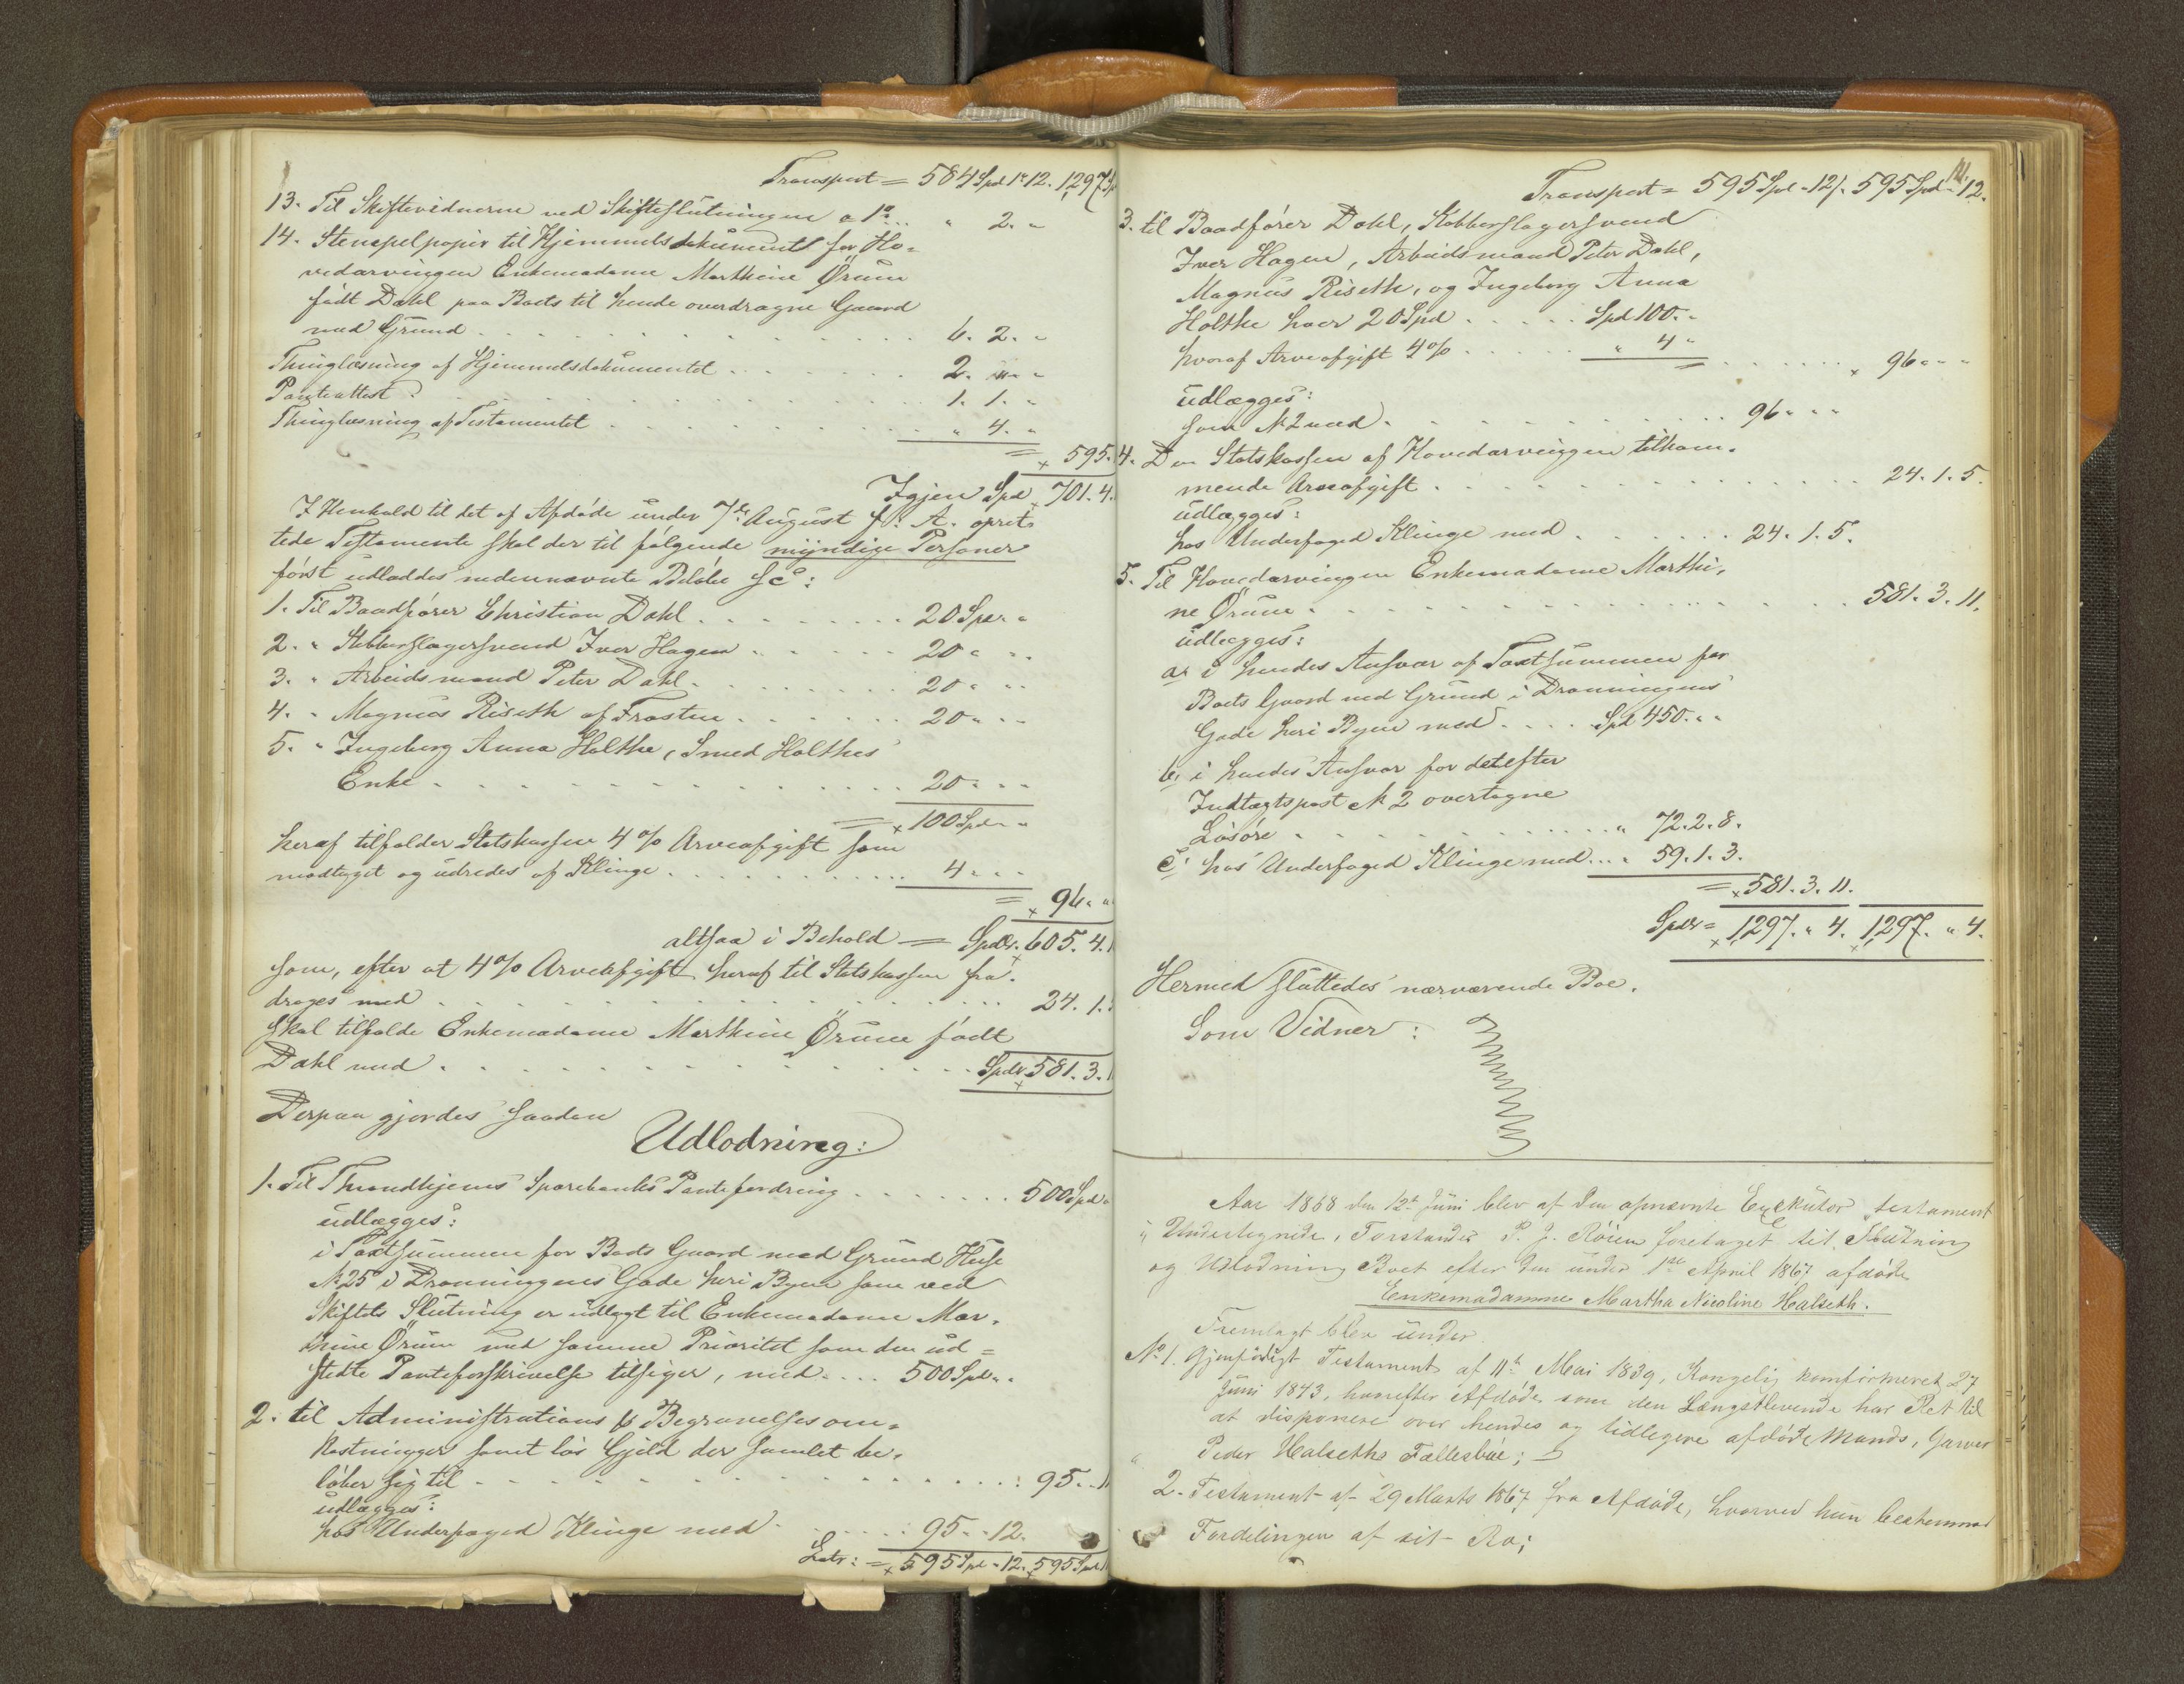 Transport = 584 Spd 1 12. 1297 Sp
13. Til Skiftevidnerne ved Skifteslutningen a 1 " 2. "
14. Stempelpapir til Hjemmelsdokument for Ho-
vedarvingen Enkemadame Marthine Ørum
født Dahl paa Boets til hende overdragne Gaard
med Grund . . . 6. 2. "
Thinglæsning af Hjemmelsdokumentet . . . 2. " "
Panteattest . . . 1. 1. "
Thinglæsning af Testamentet . . . " 4. "
= 595.
Igjen Spd 701. 4.
I Henhold til det af Afdøde under 7de August f: A. opret-
tede Testamente skal der til følgende myndige Personer
først udloddes nedennævnte Beløbe sc:
1. Til Baadfører Christian Dahl . . . 20 Spd " "
2. " Kobberslagersvend Iver Hagen . . . 20 " "
3. " Arbeidsmand Peter Dahl . . . 20 " "
4. " Magnus Riseth af Frosten . . . 20 " "
5. " Ingeborg Anna Holthe, Smed Holthes
Enke . . . 20 " "
= 100 Spd " "
heraf tilfalder Statskassen 4 % Arveafgift som
modtaget og udredes af Klinge . . . 4 " "
= 96 " "
altsaa i Behold = Spdlr. 605. 4.
som, efter at 4 % Arveafgift heraf til Statskassen fra-
drages med . . . 24. 1.
skal tilfalde Enkemadame Marthine Ørum født
Dahl med . . . Spdlr 581. 3.
Derpaa gjordes saadan
Udlodning:
1. Til Throndhjems Sparebanks Pantefordring . . . 500 Spd "
udlægges:
i Taxtsummen for Boets Gaard med Grund Huse
No 25 i Dronningens Gade heri Byen som ved
Skiftets Slutning er udlagt til Enkemadame Mar-
thine Ørum med samme Prioritet som den ud=
stedte Panteforskrivelse tilsiger, med . . . 500 Spd " "
2. til Administrations & Begravelsesom-
kostninger samt løs Gjeld der samlet be-
løber sig til . . . 95. "
udlægges:
hos Underfoged Klinge med . . . 95. " 12.
Latr: = 595 Spd " 12. 595 Spd
Transport = 595 Spd " 12/. 595 Spd " 12.
3. til Baadfører Dahl, Kobberslagersvend
Iver Hagen, Arbeidsmand Peter Dahl,
Magnus Riseth, og Ingeborg Anna
Holthe hver 20 Spd . . . Spd 100. "
hvoraf Arveafgift 4 % . . . " 4 "
= . . . 96 " "
udlægges:
som No 2 med . . . 96 " "
4. Den Statskassen af Hovedarvingen tilkom-
mende Arveafgift . . . 24. 1. 5.
udlægges:
hos Underfoged Klinge med . . . 24. 1. 5.
5. Til Hovedarvingen Enkemadame Marthi-
ne Ørum . . . 581. 3. 11.
udlægges:
a, i hendes Ansvar af Taxtsummen for
Boets Gaard med Grund i Dronningens
Gade heri Byen med . . . Spd 450. " "
b, i hendes Ansvar for det efter
Indtægtspost No 2 overtagne
Løsøre . . . " 72. 2. 8.
c, hos Underfoged Klinge med . . . 59. 1. 3.
= 581. 3. 11.
Spdlr = 1297. " 4. 1297. " 4.
Hermed sluttedes nærværende Boe.
Som Vidner:
Aar 1868 den 12te Juni blev af den opnævnte Exekutor testament
" Undertegnede, Forstander P. J. Röien foretaget til Slutning
og Udlodning Boet efter den under 1ste April 1867 afdøde
Enkemadamme Martha Nicoline Halseth.
Fremlagt blev under
No 1. Gjensidigt Testament af 11te Mai 1839, Kongelig konfirmeret 27
Juni 1843, hvorefter Afdøde som den Længstlevende har Ret til
at disponere over hendes og tidligere afdøde Mands, Garver
Peder Halseths Fællesboe;
2. Testament af 29 Marts 1867 fra Afdøde, hvorved hun bestemmer
Fordelingen af sit Bo;